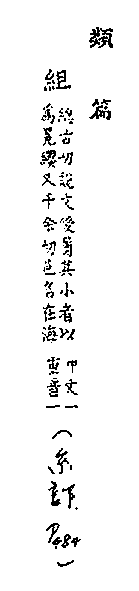 類篇
組
總古切說文綬屬其小者以
爲冕纓又千余切邑名在海
中文一
重音一
(糸部 P484)